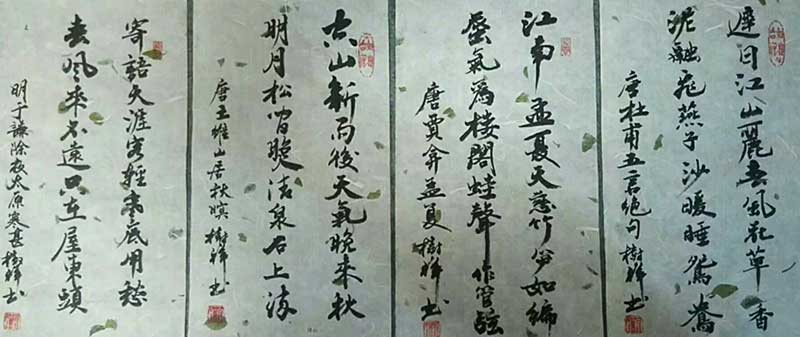 遲日江山麗春風花草香
泥融飛燕子沙暖睡鴛鴦
唐杜甫五言绝句 樹祥书
江南孟夏天慈竹笋如編
蜃氣為楼閣蛙聲作管弦
唐賈弇孟夏 樹祥书
空山新雨後天氣晚来秋
明月松间照清泉石上流
唐王維山居秋暝 樹祥书
寄語天涯客輕寒底用愁
春風来不遠只在屋東頭
明于謙除夜太原寒甚 樹祥书